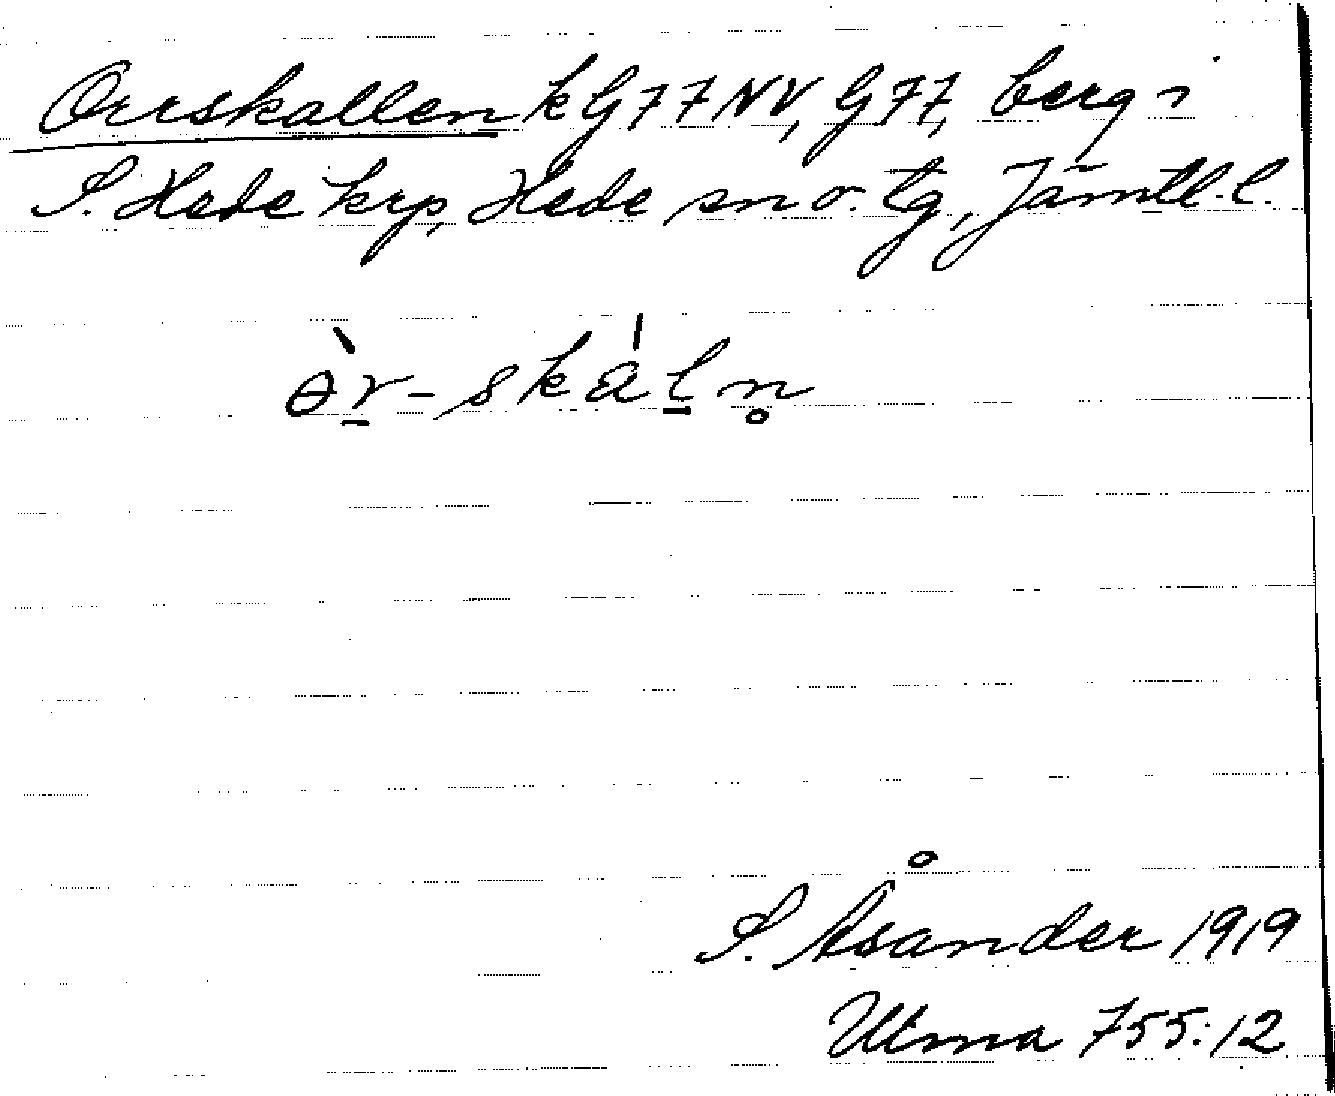 Orrskallen k G77NV, G77, berg i
S. Hede krp, Hede sn o. tg, Jämtl. l.
ɵ̀r̠-skál̠n̥
S. Åsander 1919
Utma 755:12